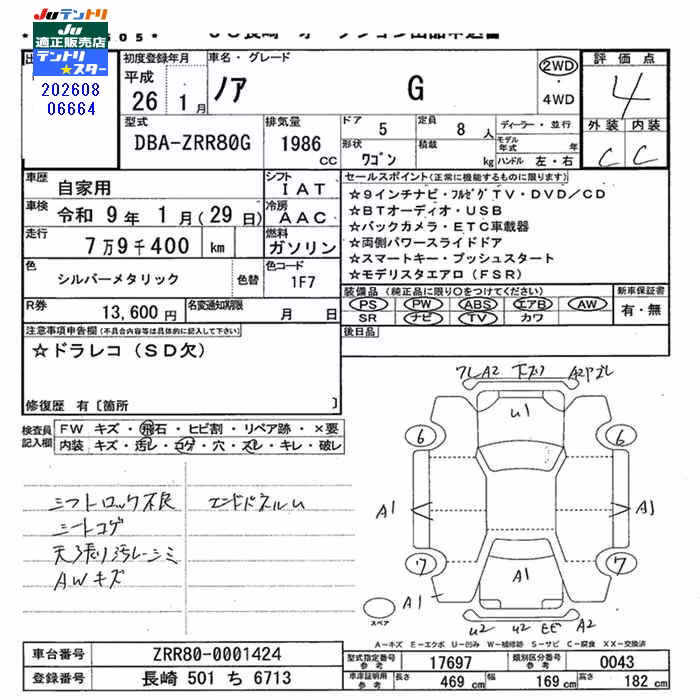 Juテントリ
JU
適正販売店
テントリ
★スター
202608
06664
初度登録年月
平成
26 1月
車名・グレード
ノア G
2WD
・
4WD
評価点
4
外装 内装
C C
型式
DBA-ZRR80G
排気量
1986
cc
ドア 5 定員 8人
形状 ワゴン 積載 kg
ディーラー・並行
モデル年式 年
ハンドル 左・右
車歴 自家用
シフト IAT
車検 令和 9年 1月(29日)
冷房 AAC
走行 7万9千400 km
燃料 ガソリン
色 シルバーメタリック 色替
色コード 1F7
R券 13,600円
名変通知期限 月 日
セールスポイント(正常に機能するものに限ります)
☆9インチナビ・フルセグTV・DVD/CD
☆BTオーディオ・USB
☆バックカメラ・ETC車載器
☆両側パワースライドドア
☆スマートキー・プッシュスタート
☆モデリスタエアロ(FSR)
装備品(純正品に限り○をつけてください)
PS PW ABS エアB AW
SR ナビ TV カワ
新車保証書
有・無
後日品
注意事項申告欄(不具合内容等は具体的に記入して下さい)
☆ドラレコ(SD欠)
修復歴 有〔箇所 〕
検査員記入欄
FW キズ・飛石・ヒビ割・リペア跡・×要
内装 キズ・汚レ・コゲ・穴・スレ・キレ・破レ
シフトロック不良 エンドパネルU
シートコゲ
天張り汚レ・シミ
AWキズ
ワレA2 下ズリ A2アズレ
U1
6 6
A1 A1
7 7
A1
A1
U2 U2 ヒビ A2
スペア
A-キズ E-エクボ U-凹み W-補修跡 S-サビ C-腐食 XX-交換済
車台番号 ZRR80-0001424
登録番号 長崎 501 ち 6713
型式指定番号 参考 17697 類別区分番号 参考 0043
車庫証明用 参考 長さ 469 cm 幅 169 cm 高さ 182 cm